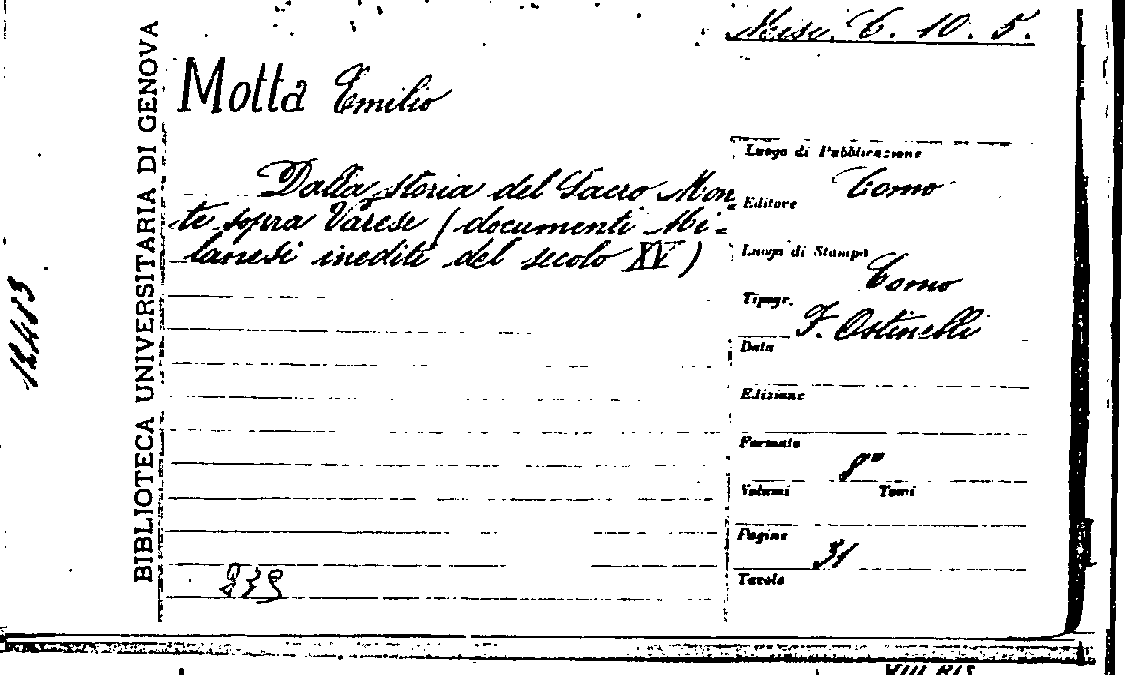 Misc. C. 10. 5.
BIBLIOTECA UNIVERSITARIA DI GENOVA
12413
Motta Emilio
Dalla storia del Sacro Mon-
te sopra Varese (documenti Mi-
lanesi inediti del secolo XV)
Luogo di Pubblicazione
Como
Editore
Luogo di Stampa
Como
Tipogr.
F. Ostinelli
Data
Edizione
Formato
8°
Volumi Tomi
Pagine
31
Tavole
VIII BIS